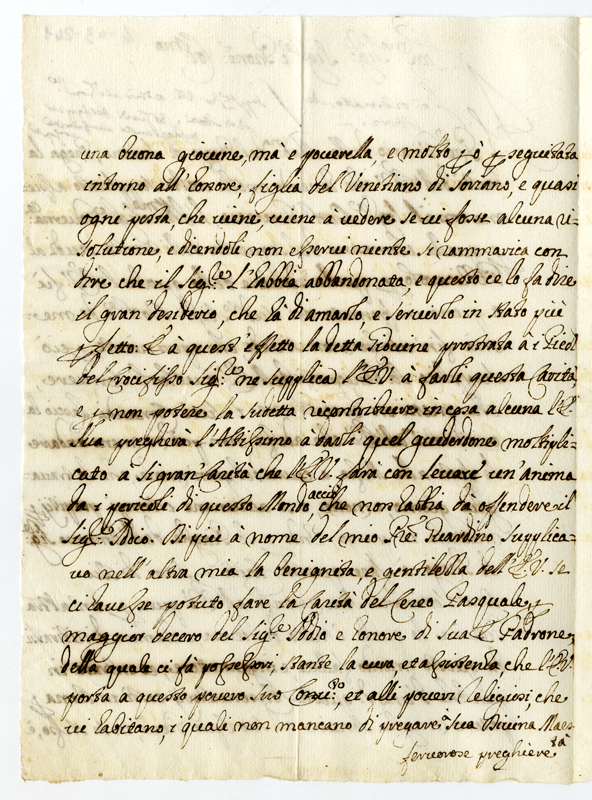 una buona giovine, mà è poverella, e molto p ò p seguitata
intorno all'honore, figlia del Venetiano di Soriano, e quasi
ogni posta, che viene, viene à vedere se vi fosse alcuna ri=
solutione, e dicendoli non esservi niente si rammarica con
dire che il Sig.re l'habbia abbandonata, e questo ce lo fa dire
il gran' desiderio, che hà di amarlo, e servirlo in stato più
pfetto: E à quest'effetto la detta Giovine prostrata à i Piedi
del Crocifisso Sig.re ne supplica l' V. à farli questa Carità,
e p non potere la sudetta ricontribuire in cosa alcuna l'
Sua pregherà l'Altissimo à darli quel guiderdone moltipli=
cato à sì gran' Carità che l' V. farà con levare un'anima
da i pericoli di questo Mondo, acciò che non habbia dà offendere il
Sig.re Iddio. Di più à nome del mio Pre. Guardino supplica=
vo nell'altra mia la benignità, e gentilezza dell' V. se
ci havesse potuto fare la Carità del Cereo Pasquale, p
maggior decoro del Sig.re Iddio e honore di Sua Padrone,
della quale ci fà possessori, stante la cura et assistenza che l' V.
porta a questo povero suo Conv.to, et alli poveri Religiosi, che
vi habitano, i quali non mancano di pregare à Sua Divina Maes
tà
fervorose preghiere